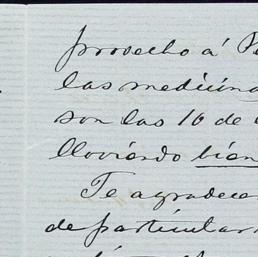 provecho á
las medicina
son las 16 de
lloviendo bien
Te agradece
de particular